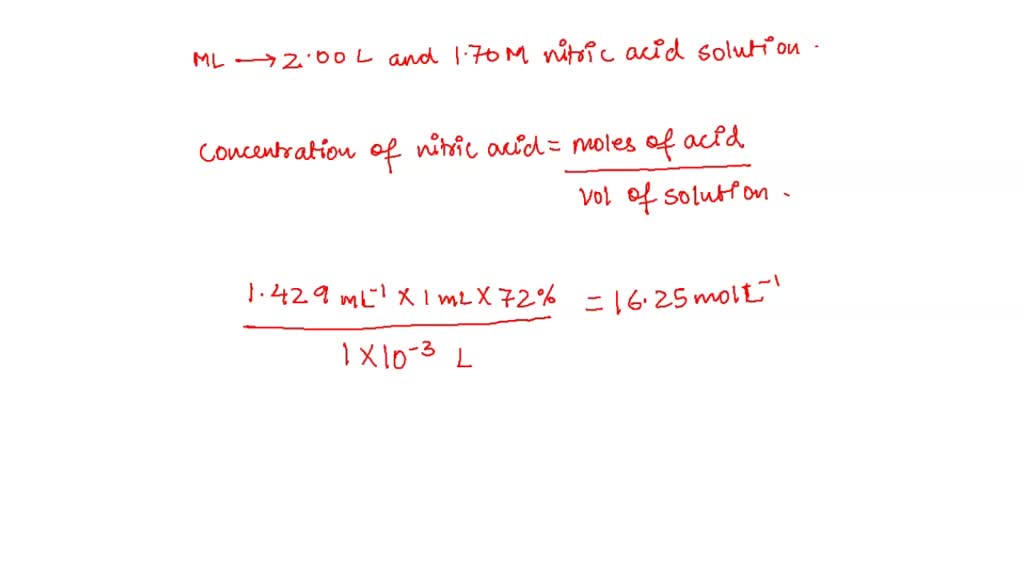 ML → 2.00 L and 1.70 M nitric acid solution .
concentration of nitric acid = moles of acid
vol of solution .
1.429 mL⁻¹ × 1 mL × 72% = 16.25 mol L⁻¹
1 × 10⁻³ L